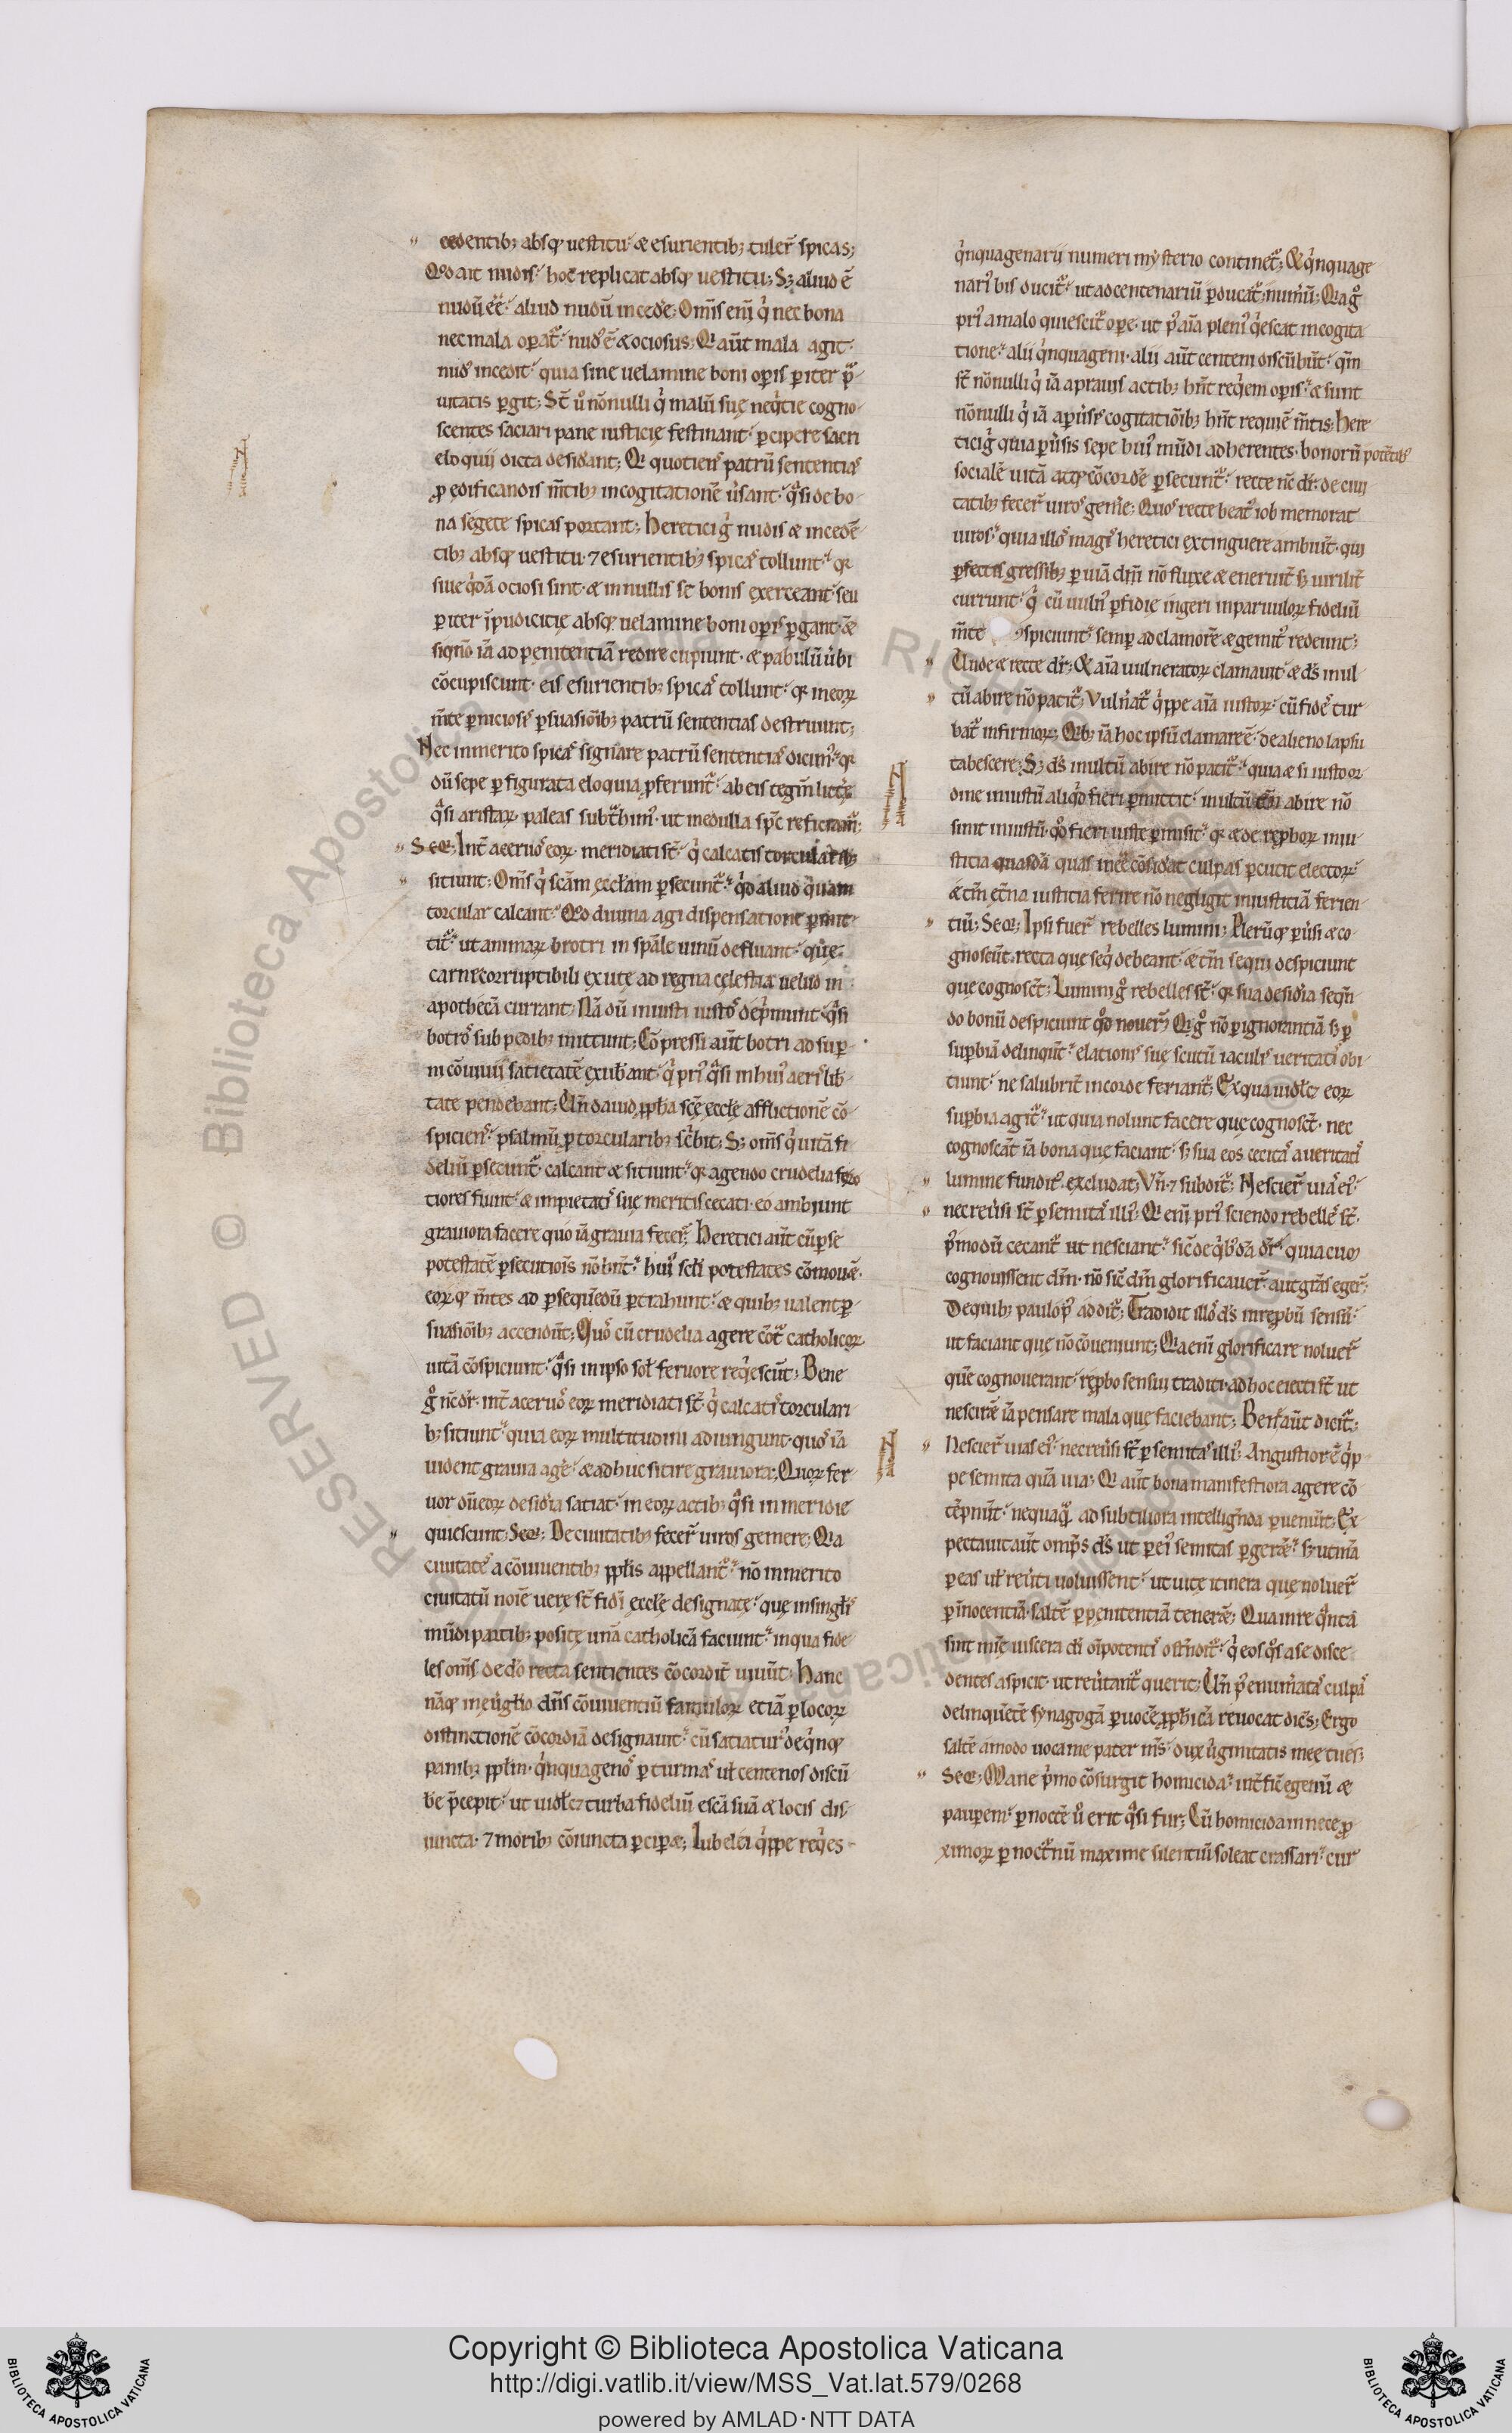 cedentib; absq; uestitu. & esurientib; tuler̄ spicas;
Qd ait nudis. hoc replicat absq; uestitu; S; aliud ē
nudū eē. aliud nudū incedĕ; Om̄s eni q̇ nec bona
nec mala opat̄. nud᾽ ē & ociosus; Q aūt mala agit.
nud᾽ incedit. quia sine uelamine boni opis p iter p̄
uitatis pgit; St̄ u᾽ nōnulli q̇ malū suę neq̇tie cogno
scentes saciari pane iusticię festinant. pcipere sacri
eloquij dicta desiđant; Et quotiens patrū sententias
ꝓ ędificandis m̄tib; in cogitationē ūsant. q̄si de bo
na segete spicas portant; Heretici g̊ nudis & incedē
tib; absq; uestitu. ⁊ esurientib; spicas tollunt. q̄
siue q̇dā ociosi sint. & in nullis se bonis exerceant. seu
p iter īpudicicię absq; uelamine boni opis pgant. &
siqn̄o iā ad penitentiā redire cupiunt. & pabulū ūbi
cōcupiscunt. eis esurientib; spicas tollunt. q̄ in eoꝝ
m̄te pniciosis psuasionib; patrū sententias destruunt;
Nec inmerito spicas signare patrū sententias dicim᾽. q̄
dū sepe p figurata eloquia ꝓferunt̄. ab eis tegm̄ litt̄ę
q̄si aristaꝝ paleas subt̄him᾽. ut medulla spc̄ reficiam̄;
Seq; Int̄ aceruos eoꝝ. meridiati st̄. q̇ calcatis torcularib;
sitiunt; Om̄s q̇ scām ęccłam psecunt̄. qd aliud quam
torcular calcant. Qd diuina agi dispensatione pmit
tit̄. ut animaꝝ brotri in spāle uinū defluant. que
carne corruptibili exute ad regna celestia uelud in
apothecā currant; Nā dū iniusti iustos depmunt. q̄si
botros sub pedib; mittunt; Cōpressi aūt botri ad sup
ni cōuiuii satietatē exubant. q̇ pri᾽ q̄si in hui᾽ aeris lib
tate pendebant; Un̄ dauid ꝓpha scę ecclę afflictionē cō
spiciens. psalmū ꝓ torcularib; scbit; S; om̄s q̇ uitā fi
deliū psecunt̄. calcant & sitiunt. q̄ agendo crudelia fero
tiores fiunt. & impietatis suę meritis cecati. eo ambiunt
grauiora facere quo iā grauia fecer̄; Heretici aūt cū p se
potestatē psecutiois nō hn̄t. hui᾽ scłi potestates cōmouē.
eoꝝq; m̄tes ad psequēdū ptrahunt. & quib; ualent p
suasionib; accendūt; Quos cū crudelia agere cōt̄ catholicoꝝ
uitā cōspiciunt. q̄si in ipso soł feruore reqescūt; Bene
g̊ n̄c dr̄. int̄ aceruos eoꝝ meridiati st̄. q̇ calcatis torculari
b; sitiunt. quia eoꝝ multitudini adiungunt. quos iā
uident grauia agē. & adhuc sitire grauiora; Quoꝝ fer
uor dū eoꝝ desiđia satiat. in eoꝝ actib; q̄si in meridie
quiescunt; Seq; De ciuitatib; fecer̄ uiros gemere; Q̄a
ciuitates a cōuiuentib; ꝓplis appellant̄. nō inmerito
ciuitatū noīe uere st̄ fidi ecclę designate. quę in singlis
mūdi partib; positę unā catholicā faciunt. in qua fide
les om̄s de dō recta sentientes cōcordit̄ uiuūt; Hanc
nāq; in euglio dn̄s cōuiuentiū famuloꝝ etiā p locoꝝ
distinctionē cōcordiā designauit. cū satiatur᾽ de q̇nq;
panib; ꝓplm. q̇nquagenos p turmas uł centenos discū
be p̄cepit. ut uidłc; turba fideliū escā suā & locis dis
iuncta. ⁊ morib; cōiuncta pcipæ; Iubelei q̇ppe req̇es
q̇nquagenarij numeri mysterio continet̄; & q̇nquage
nari᾽ bis ducit̄. ut ad centenariū pducat̄ num̄ū; Q̄a g̊
pri᾽ a malo quiescit̄ ope. ut p᾽ aīa pleni᾽ q̇escat in cogita
tione. alii q̇nquageni. alii aūt centeni discūbūt. qm̄
st̄ nōnulli q̇ iā a prauis actib; hn̄t reqem opis. & sunt
nōnulli q̇ iā a puisis cogitationib; hn̄t requiē m̄tis; Here
tici g̊ quia puisis sepe hui᾽ mūdi adherentes. bonorū potētib᾽
socialē uitā atq; cōcordē psecunt̄. recte n̄c dr̄. de ciui
tatib; fecer̄ uiros gem̄e; Quos recte beat᾽ iob memorat
uiros. quia illos magis heretici extinguere ambiūt. qui
pfectis gressib; p uiā dn̄i nō fluxe & eneruit̄ s; uirilit̄
currunt. q̇ cū uuln᾽ pfidię ingeri in paruuloꝝ fideliū
m̄te ꝯspiciunt. semp ad clamorē & gemit᾽ redeunt;
Unde & recte dr̄; & aīa uulneratoꝝ clamauit. & ds̄ inul
tū abire nō patit̄; Vuln̄at̄ q̇ppe aīa iustoꝝ. cū fides tur
bat̄ infirmoꝝ; Qb; iā hoc ipsū clamare ē. de alieno lapsu
tabescere; S; ds̄ inultū abire nō patit̄. quia & si iusto or
dine iniustū aliqd fieri pmittit. inultū tm̄ abire nō
sinit iniustū. qd fieri iuste pmisit. q̄ & de reꝓboꝝ iniu
sticia quasdā quas inee cōsiđat culpas pcutit electoꝝ.
& tm̄ et̄na iusticia ferire nō negligit iniusticiā ferien
tiū; Seq; Ipsi fuer̄ rebelles lumini; Pleruq; puisi & co
gnoscūt recta que seq̇ debeant. & tm̄ sequi despiciunt
que cognoscūt; Lumini g̊ rebelles st̄. q̄ sua desiđia seqn̄
do bonū despiciunt qd nouer̄; Q g̊ nō p ignorantiā s; p
supbiā delinqūt. elationis suę scutū iaculis ueritatis obi
tiunt. ne salubrit̄ in corde feriant̄; Ex qua uidłc; eoꝝ
supbia agit̄. ut quia nolunt facere quę cognoscūt. nec
cognoscāt iā bona quę faciant. s; sua eos cecitas a ueritatis
lumine fundit᾽ excludat; Vn̄ ⁊ subdit̄; Nescier̄ uiā ei᾽.
nec reūsi st̄ p semitas illi᾽; Q eni pri᾽ sciendo rebelles st̄.
p᾽modū cecant̄ ut nesciant. sic̄ de q̇b᾽dā dr̄. quia cum
cognouissent dm̄. nō sic̄ dm̄ glorificauer̄. aut gr̄as eger̄;
De quib; paulo p᾽ addit̄; Tradidit illos ds̄ in reꝓbū sensū.
ut faciant que nō cōueniunt; Q̄a eni glorificare noluer̄
quē cognouerant. reꝓbo sensui traditi. ad hoc eiecti st̄ ut
nescirē iā pensare mala que faciebant; Bene aūt dicit̄;
Nescier̄ uias ei᾽. nec reūsi st̄ p semitas illi᾽; Angustior ē q̇p
pe semita quā uia; Q aūt bona manifestiora agere cō
tēpnūt. nequaq̄ ad subtiliora intellign̄da pueniūt; Ex
pectauit aūt omps ds̄ ut p ei᾽ semitas pgerē. s; utinā
p eas uł reūti uoluissent. ut uitę itinera que noluer̄
p īnocentiā. saltē p penitentiā tenerē; Qua in re q̄nta
sint mīę uiscera di oīpotentis ostn̄dit̄. q̇ eos qs a se disce
dentes aspicit. ut reūtant̄ querit; Un̄ p᾽ enumatas culpas
delinquētē synagogā p uocē ꝓphicā reuocat dicēs; Ergo
saltē amodo uoca me pater m̄s. dux uginitatis meę tu es;
Seq; Mane p᾽mo cōsurgit homicida. int̄fic egenū &
paupem. p noctē u᾽ erit q̄si fur; Cū homicida in nece ꝓ
ximoꝝ p noct̄nū maxime silentiū soleat crassari. cur
Copyright © Biblioteca Apostolica Vaticana
http://digi.vatlib.it/view/MSS_Vat.lat.579/0268
powered by AMLAD·NTT DATA